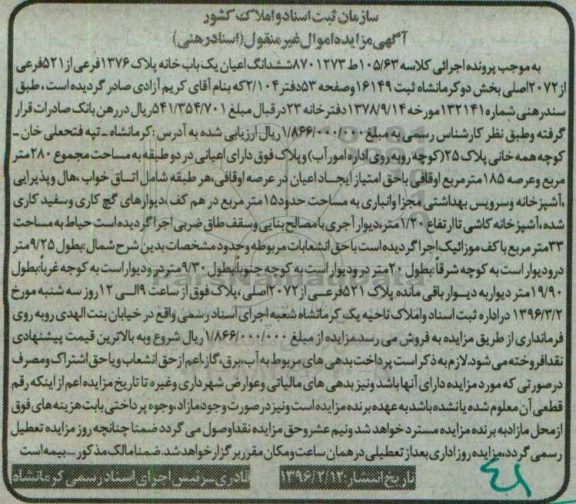 سازمان ثبت اسناد و املاک کشور
آگهی مزایده اموال غیر منقول (اسناد رهنی)
به موجب پرونده اجرائی کلاسه ۱۰۵/۶۳ط ۸۷۰۱۲۷۳ ششدانگ اعیان یک باب خانه پلاک ۱۳۷۶ فرعی از ۵۲۱ فرعی
از ۲۰۷۲ اصلی بخش دو کرمانشاه ثبت ۱۶۱۴۹ و صفحه ۵۳ دفتر ۲/۱۰۴ که بنام آقای کریم آزادی صادر گردیده است، طبق
سند رهنی شماره ۱۳۲۱۴۱ مورخه ۱۳۷۸/۹/۱۴ دفتر خانه ۲۳ در قبال مبلغ ۵۴۱/۳۵۴/۷۰۱ ریال در رهن بانک صادرات قرار
گرفته و طبق نظر کارشناس رسمی به مبلغ ۱/۸۶۶/۰۰۰/۰۰۰ ریال ارزیابی شده به آدرس: کرمانشاه - تپه فتحعلی خان -
کوچه همه خانی پلاک ۲۵ (کوچه روبه روی اداره امور آب) و پلاک فوق دارای اعیانی در دو طبقه به مساحت مجموع ۲۸۰ متر
مربع و عرصه ۱۸۵ متر مربع اوقافی با حق امتیاز ایجاد اعیان در عرصه اوقافی، هر طبقه شامل اتاق خواب، هال و پذیرایی
، آشپزخانه و سرویس بهداشتی مجزا و انباری به مساحت حدود ۱۵ متر مربع در هم کف، دیوارهای گچ کاری و سفید کاری
شده، آشپزخانه کاشی تا ارتفاع ۱/۲۰ متر، دیوار آجری با مصالح بنایی و سقف طاق ضربی اجرا گردیده است حیاط به مساحت
۳۳ متر مربع با کف موزائیک اجرا گردیده است با حق انشعابات مربوطه و حدود مشخصات بدین شرح شمالاً: بطول ۹/۲۵ متر
درو دیوار است به کوچه شرقاً: بطول ۲۰ متر درو دیوار است به کوچه جنوباً: بطول ۹/۳۰ متر درو دیوار است به کوچه غرباً: بطول
۱۹/۹۰ متر دیوار به دیوار باقی مانده پلاک ۵۲۱ فرعی از ۲۰۷۲ اصلی، پلاک فوق از ساعت ۹ الی ۱۲ روز سه شنبه مورخ
۱۳۹۶/۳/۲ در اداره ثبت اسناد و املاک ناحیه یک کرمانشاه شعبه اجرای اسناد رسمی واقع در خیابان بنت الهدی روبه روی
فرمانداری از طریق مزایده به فروش می رسد. مزایده از مبلغ ۱/۸۶۶/۰۰۰/۰۰۰ ریال شروع و به بالاترین قیمت پیشنهادی
نقداً فروخته می شود. لازم به ذکر است پرداخت بدهی های مربوط به آب، برق، گاز، اعم از حق انشعاب و یا حق اشتراک و مصرف
در صورتی که مورد مزایده دارای آنها باشد و نیز بدهی های مالیاتی و عوارض شهرداری و غیره تا تاریخ مزایده اعم از اینکه رقم
قطعی آن معلوم شده یا نشده باشد به عهده برنده مزایده است و نیز در صورت وجود مازاد، وجوه پرداختی بابت هزینه های فوق
از محل مازاد به برنده مزایده مسترد خواهد شد و نیم عشر و حق مزایده نقداً وصول می گردد ضمناً چنانچه روز مزایده تعطیل
رسمی گردد، مزایده روز اداری بعد از تعطیلی در همان ساعت و مکان مقرر برگزار خواهد شد. ضمناً مالک مذکور ... بیمه است
تاریخ انتشار: ۱۳۹۶/۲/۱۲ نادری سرئیس اجرای اسناد رسمی کرمانشاه